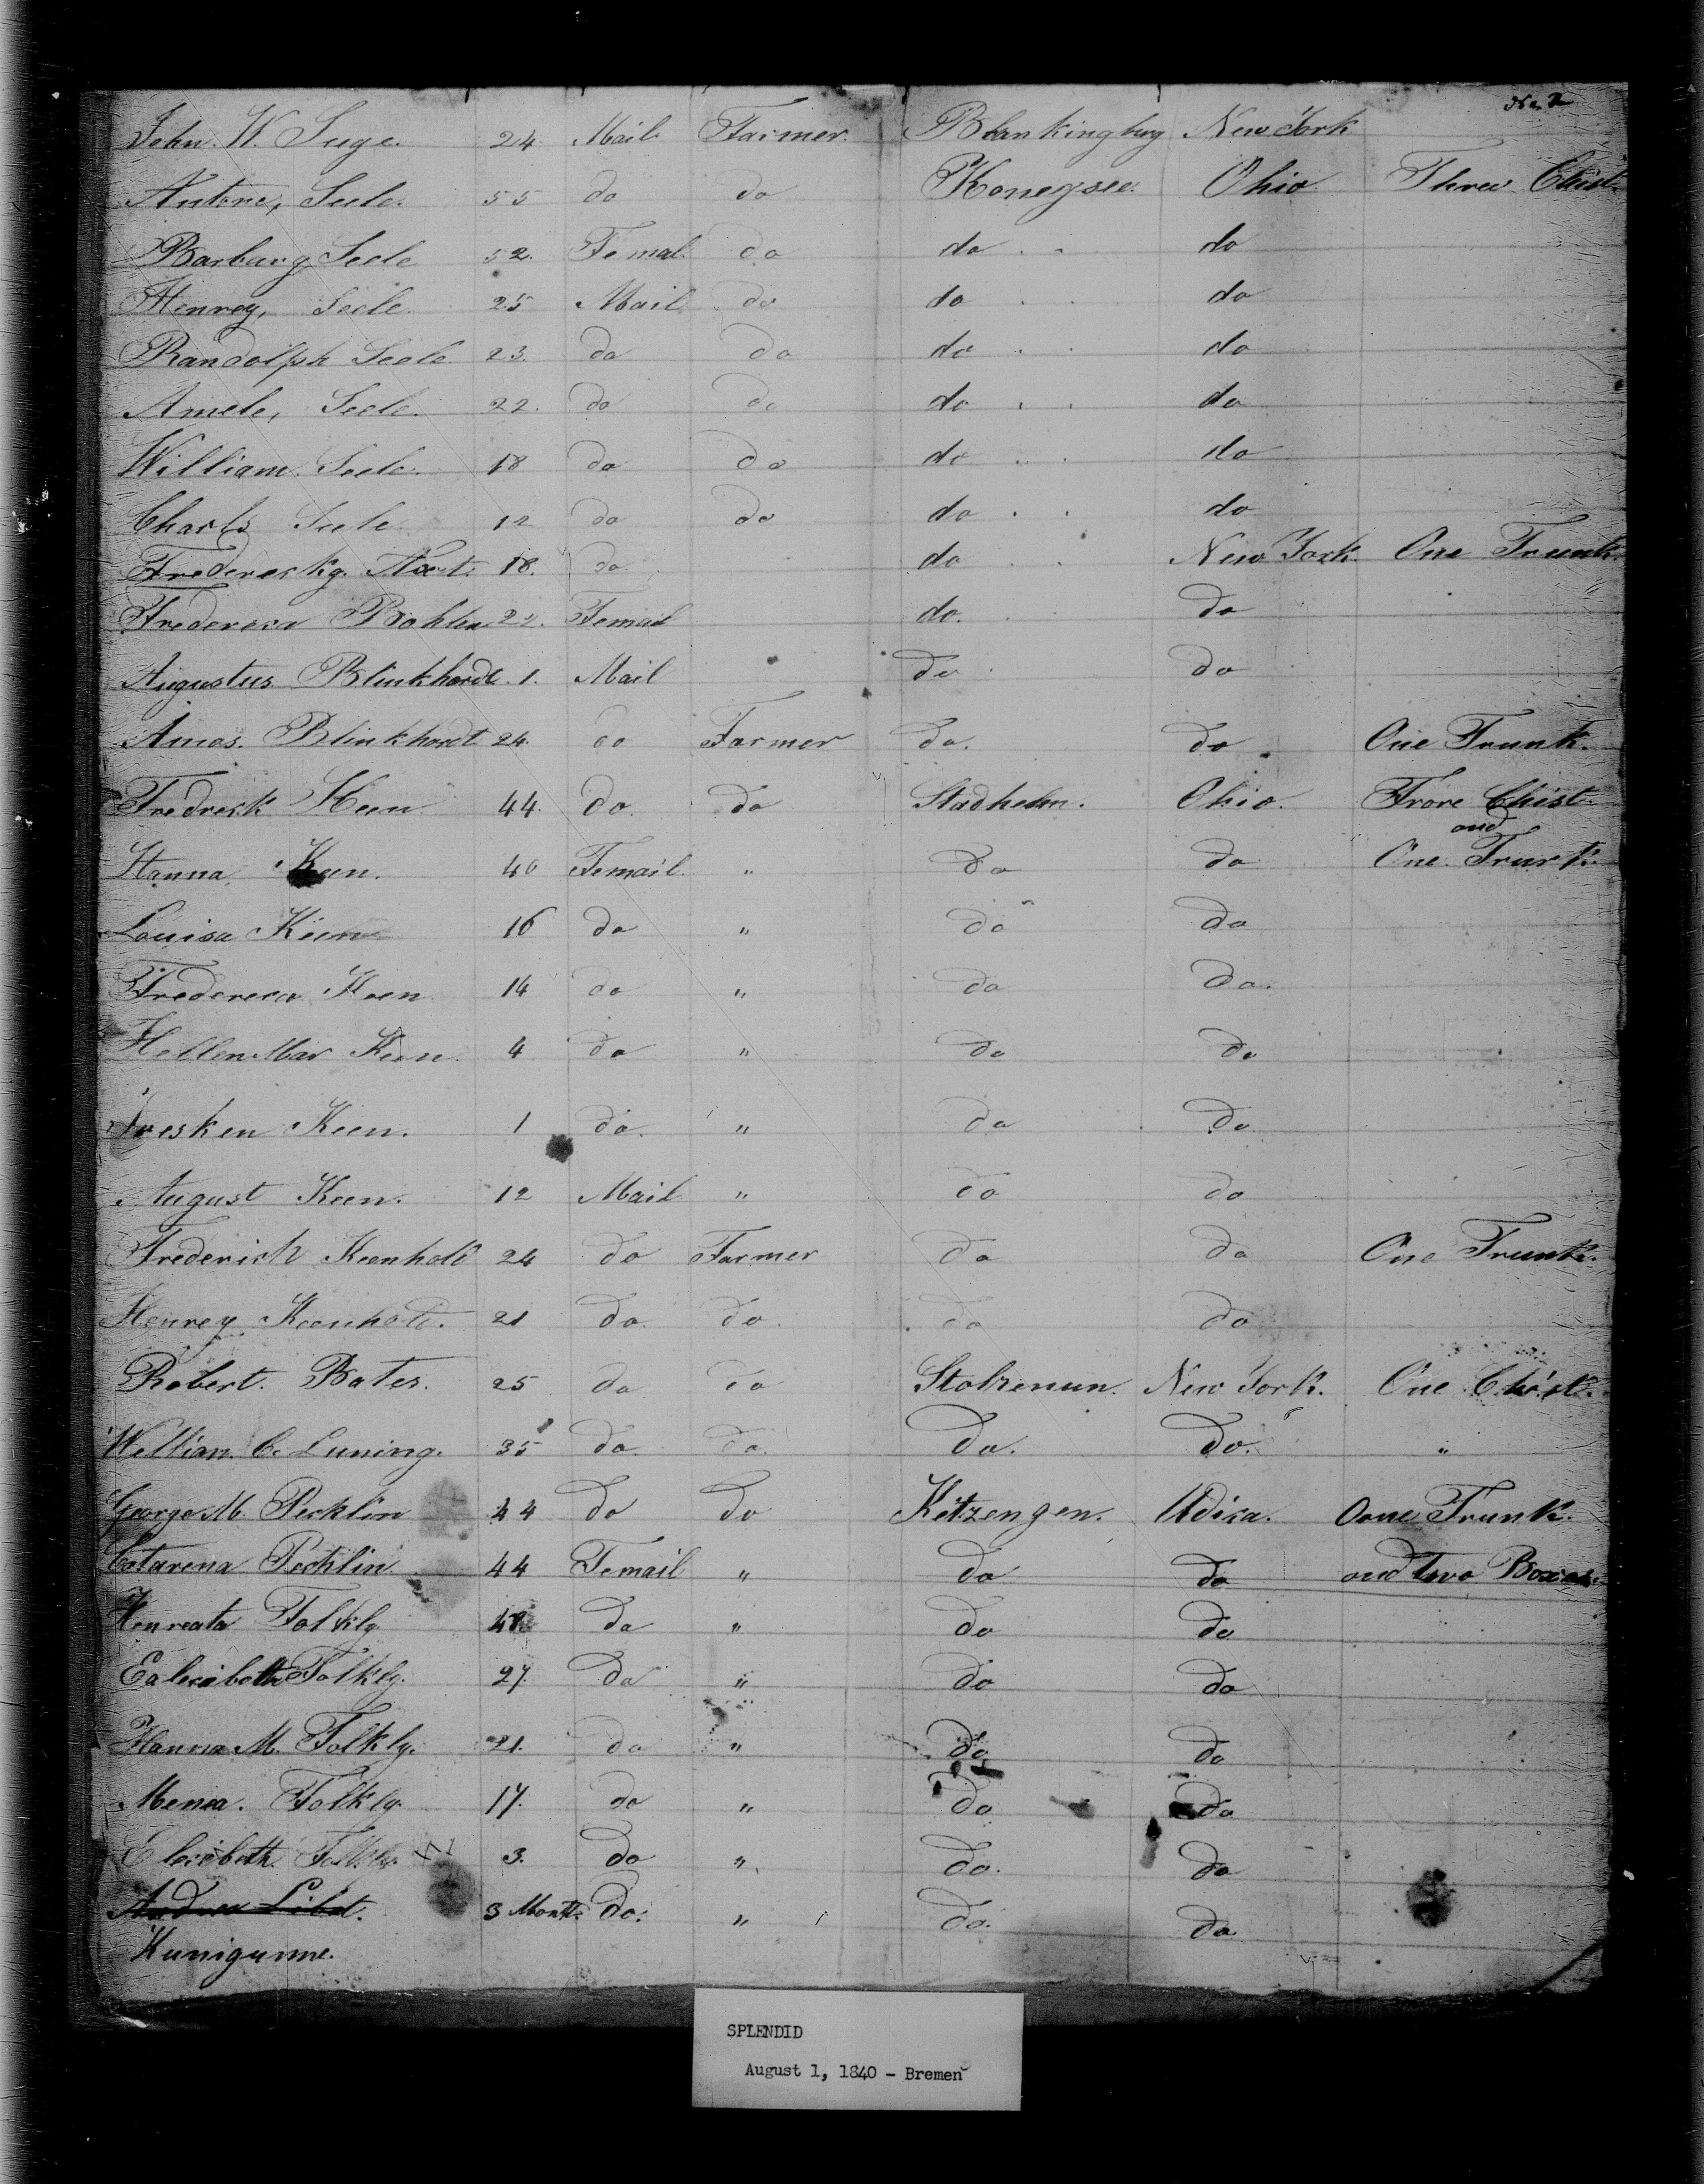 No 2
John. W. Suge. 24. Mail Farmer. Blankingburg New York
Antone, Seele. 55 do do Konegsee. Ohio Three Chist.
Barburg Seele 52. Femal. do do do
Henrey, Seele. 25 Mail. do do do
Randolph Seele. 23. do do do do
Amele, Seele. 22. do do do do
William. Seele. 18 do do do do
Charls Seele. 12 do do do do
18. do do New York. One Trunk.
Fredereca Bohlen 22. Femail do. do
Augustus Blinkhardt. 1. Mail do do
Amos. Blinkhardt 24. do Farmer do. do One Trunk.
Fredresk Keen 44. do. do Stadhelm. Ohio. Chist
and
Hanna Keen. 40 Femail. " do do One Trunk.
Louisa Keen 16 do " do do
Fredereca Keen 14 do " do do.
Hellen Mar Keen. 4 do " do do
Fresken Keen. 1 do. " do do
August Keen. 12 Mail " do do
Frederick Keenhold 24 do Farmer do do One Trunk.
Henrey Keenhold. 21 do. do. do do
Robert. Bates. 25 do do Stolzenun. New York. One Chist.
Wellian. C. Luning. 35 do do. do. do. "
George M. Pecklin 44 do do Kitzengen. Utica. Oone Trunk.
Catarena Pecklin 44 Femail " do do and two Boxes.
Henreata Folkly 48. do " do do
Ealecibeth Folkly. 27. do " do do
Hanna M. Folkly. 21. do " do do
Menea. Folkly. 17. do " do do
Elecibeth. Folkly. 3. do " do. do
Andrea Libet. 3 Month. do. " do. do
Kunigunne.
SPLENDID
August 1, 1840 - Bremen